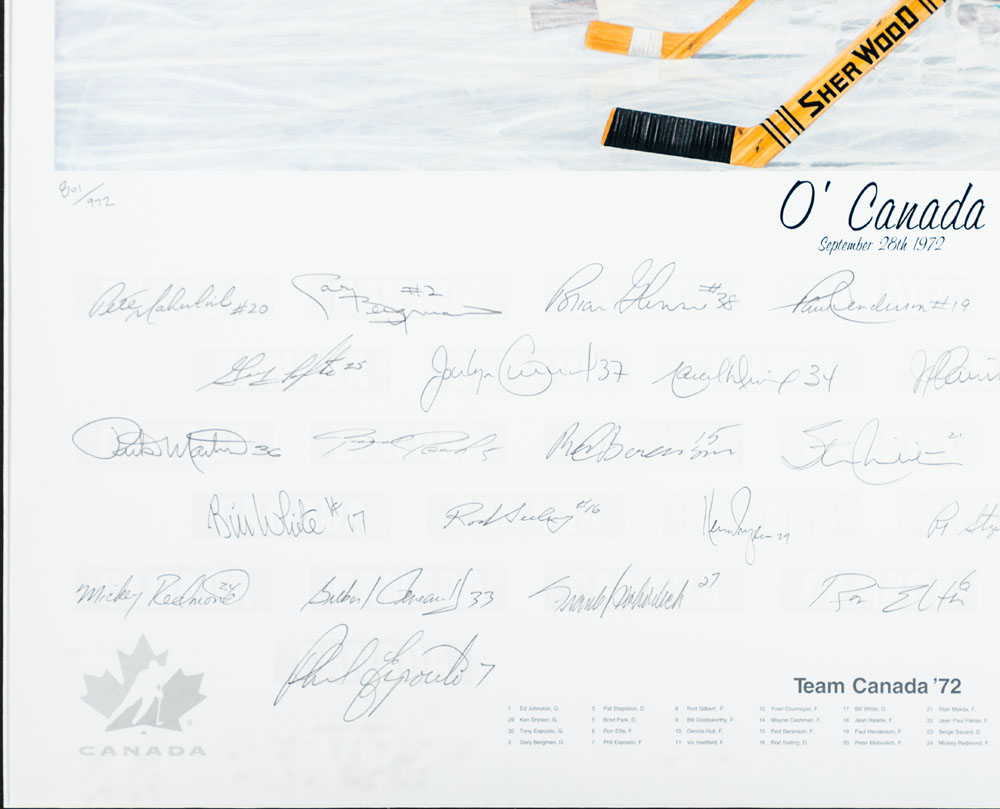 SHERWOOD
801/972
O' Canada
September 28th 1972
Pete Mahovlich #20 Gary Bergman #2 Brian Glennie #38 Paul Henderson #19
25 Jocelyn 37 Marcel Dionne 34
Pit Martin 36 Brad Park 5 Red Berenson 15 Stan Mikita 21
Bill White #17 Rod Seiling #16 Ken Dryden 29
Mickey Redmond 24 Gilbert Perreault 33 Frank Mahovlich 27 Ron Ellis 6
Phil Esposito 7
CANADA
Team Canada '72
1 Ed Johnston, G. 3 Pat Stapleton, D. 8 Rod Gilbert, F. 12 Yvan Cournoyer, F. 17 Bill White, D. 21 Stan Mikita, F.
29 Ken Dryden, G. 5 Brad Park, D. 9 Bill Goldsworthy, F. 14 Wayne Cashman, F. 18 Jean Ratelle, F. 22 Jean Paul Parise, F.
35 Tony Esposito, G. 6 Ron Ellis, F. 10 Dennis Hull, F. 15 Red Berenson, F. 19 Paul Henderson, F. 23 Serge Savard, D.
2 Gary Bergman, D. 7 Phil Esposito, F. 11 Vic Hadfield, F. 16 Rod Seiling, D. 20 Peter Mahovlich, F. 24 Mickey Redmond, F.